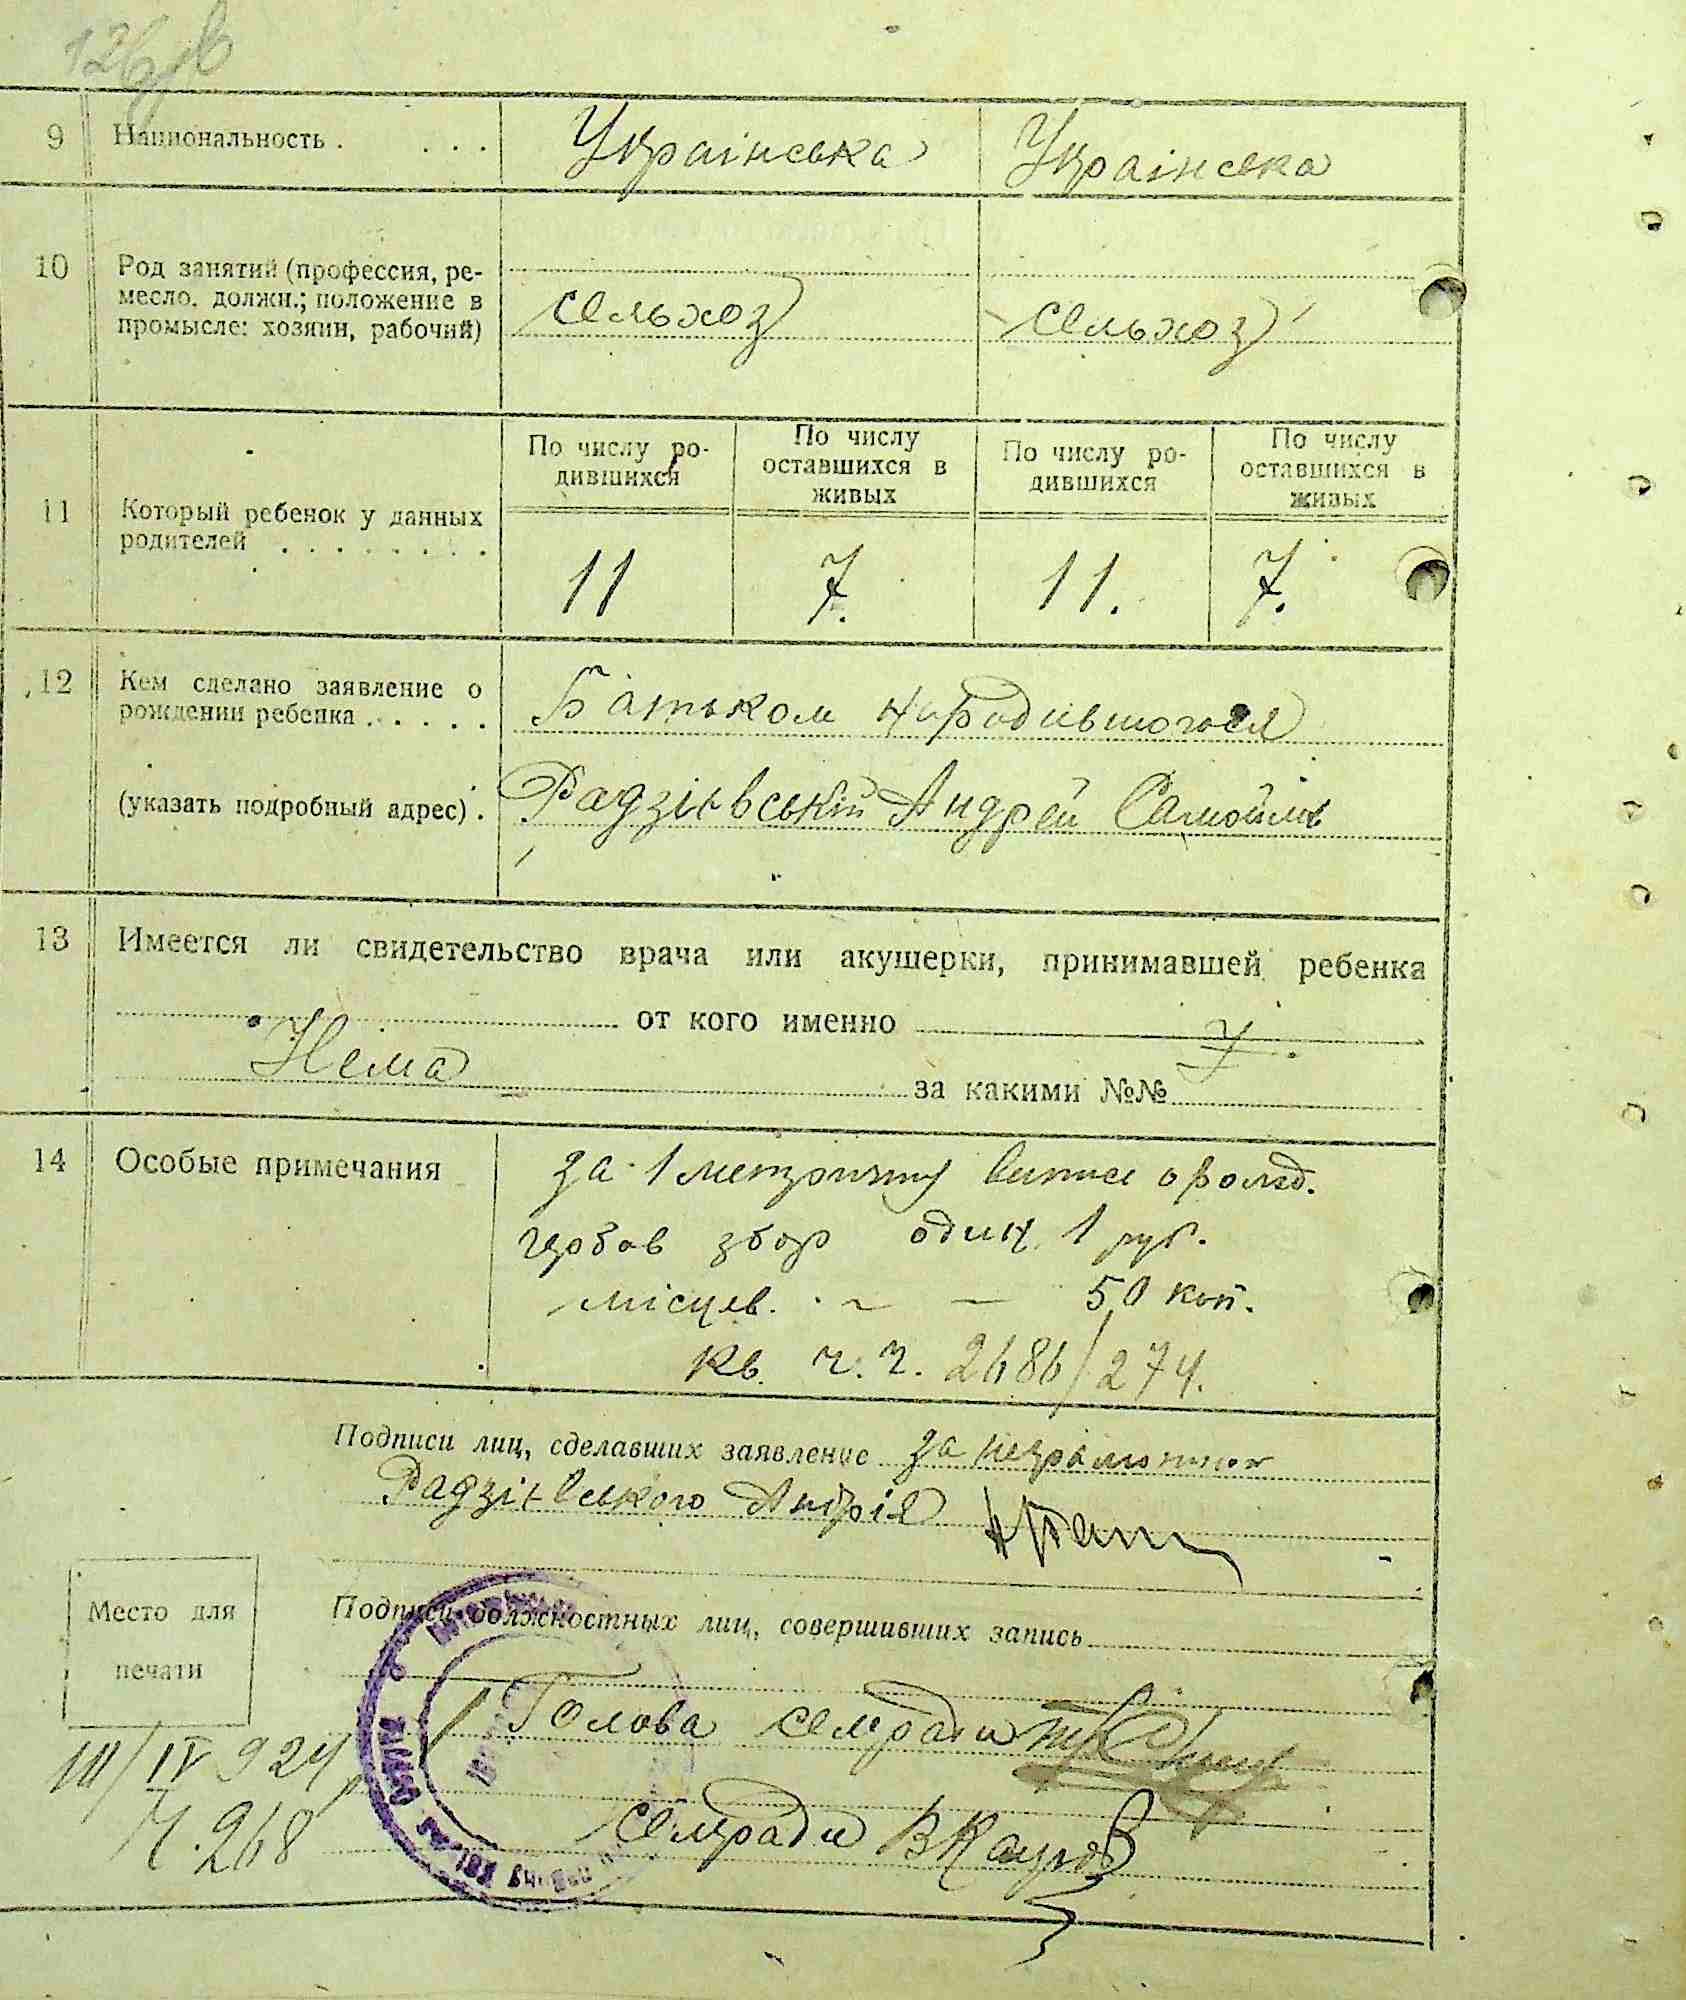 126 зв
9 Национальность . . . . Українська Українська
10 Род занятий (профессия, ре-
месло, должн.; положение в
промысле: хозяин, рабочий)
сельхоз сельхоз
По числу ро-
дившихся
По числу
оставшихся в
живых
По числу ро-
дившихся
По числу
оставшихся в
живых
11 Который ребенок у данных
родителей . . . . . . . .
11 7. 11. 7.
12 Кем сделано заявление о
рождении ребенка . . . . .
Батьком народившогося
(указать подробный адрес) .
Радзієвський Андрей Самойлов
13 Имеется ли свидетельство врача или акушерки, принимавшей ребенка
от кого именно
Нема за какими №№
14 Особые примечания
за 1 метричну випис о рожд.
гербов збор один 1 руб.
місцев. 50 коп.
кв. ч.ч. 2686/274.
Подписи лиц, сделавших заявление за неграмотного
Радзієвського Андрія
Место для
печати
Подписи должностных лиц, совершивших запись
Голова сельради
III/IV 924
Ч. 268
сельради